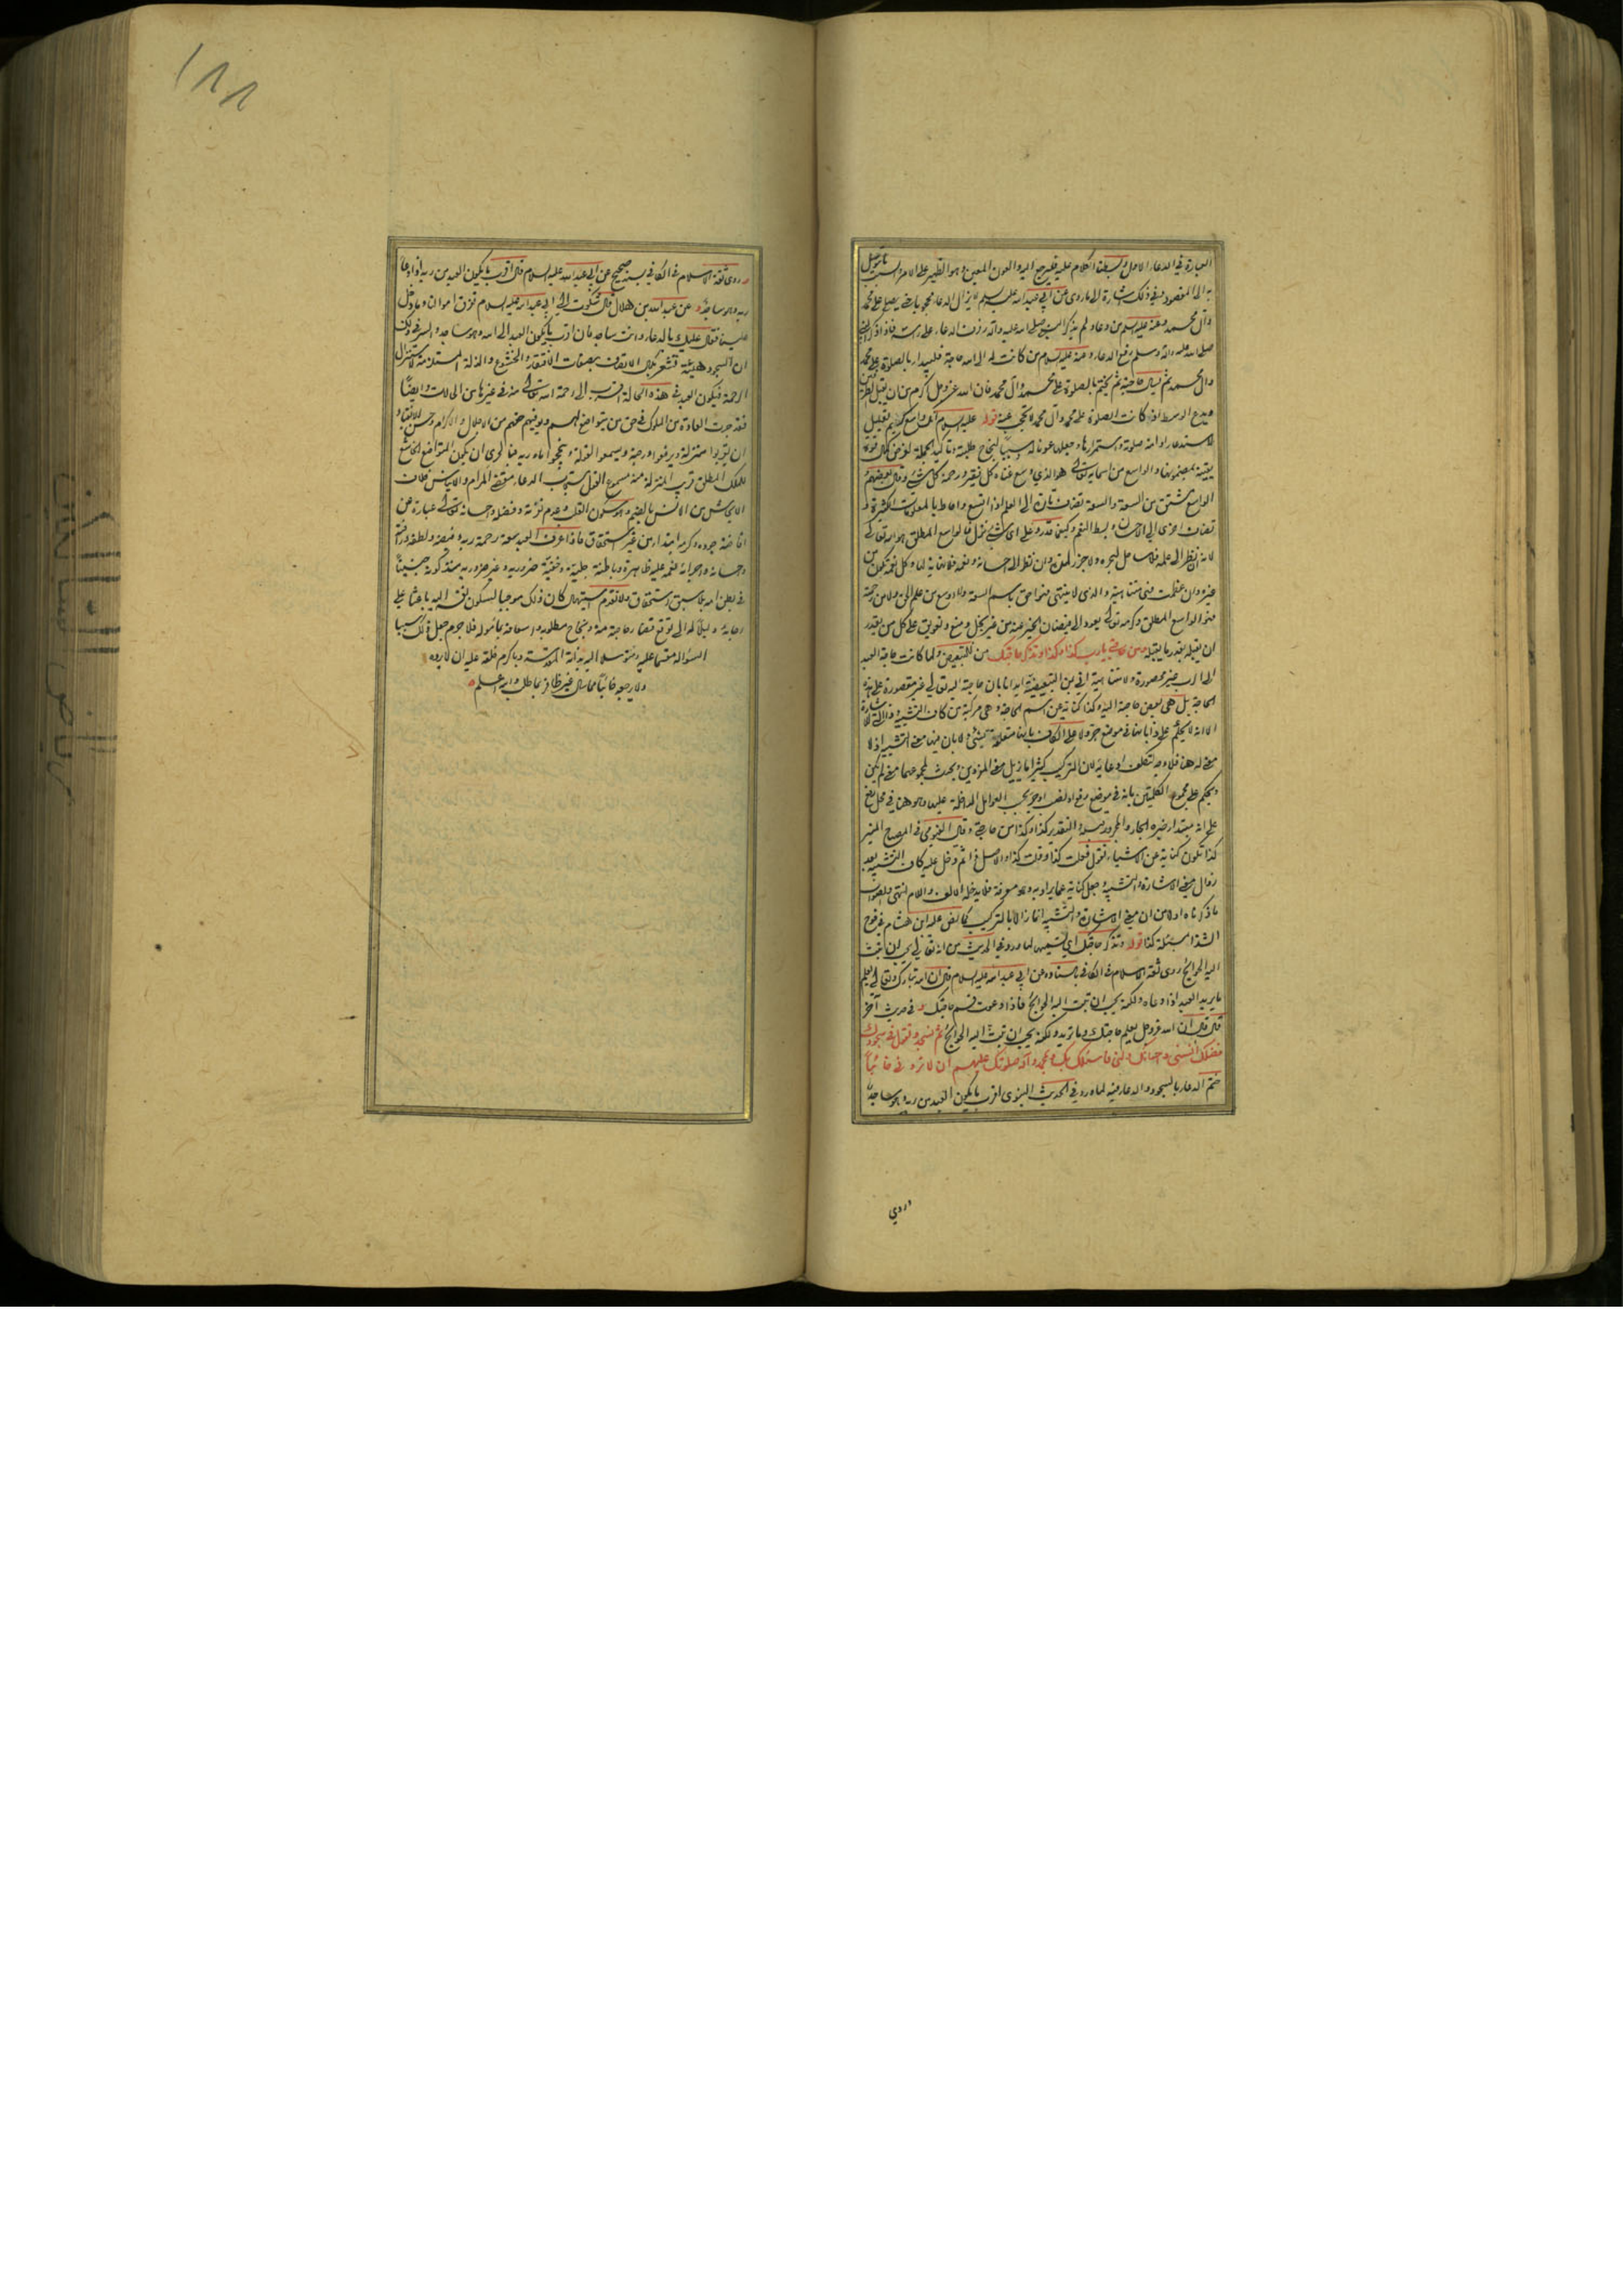 العبارة في الدعاء الاول وبسطنا الكلام عليه فليرجع اليه والعون المعين وهو الظهير على الامر والسبب ما يتوصل
به الى المقصود وفي ذلك اشارة الى ما روى عن ابي عبد الله عليه السلم لا يزال الدعاء محجوبا حتى يصلى على محمد
وآل محمد وعنه عليه السلم من دعا ولم يذكر النبي صلى الله عليه وآله رفرف الدعاء على رأسه فاذا ذكر النبي
صلى الله عليه وآله وسلم رفع الدعاء وعنه عليه السلام من كانت له الى الله حاجة فليبدأ بالصلوة على محمد
وآل محمد ثم يسأل حاجته ثم يختم بالصلوة على محمد وآل محمد فان الله عز وجل اكرم من ان يقبل الطرفين
ويدع الوسط اذا كانت الصلوة على محمد وآل محمد لا تحجب عنه قوله عليه السلام انك واسع كريم تعليل
لاستدعاء دوامه صلوته واستمرارها وجعلها عونا له وسببا لنجاح طلبته وتأكيد الجملة لغرض كمال قوة
يقينه بمضمونها والواسع من اسمائه تعالى هو الذي وسع غناه كل فقير ورحمته كل شيء وقال بعضهم
الواسع مشتق من السعة والسعة تضاف تارة الى العلم اذا اتسع واحاط بالمعلومات الكثيرة و
تضاف اخرى الى الاحسان وبسط النعم وكيف ما قدر وعلى اي شيء نزل فالواسع المطلق هو الله تعالى
لانه ان نظر الى علمه فلا ساحل لبحره ولا جزر لمده وان نظر الى احسانه ونعمه فلا نهاية لها وكل نعمة تكون من
غيره وان عظمت فهي متناهية والذى لا يتناهى فهو احق باسم السعة ولا اوسع من علم الحق ولا من رحمته
فهو الواسع المطلق وكرمه تعالى يعود الى فيضان الخير عنه من غير بخل ومنع وتعويق على كل من يقدر
ان يقبله بقدر ما يقبله ومن حاجتي يا رب كذا وكذا وتذكر حاجتك من للتبعيض ولما كانت حاجة العبد
الى الرب غير محصورة ولا متناهية اتى بمن التبعيضية ايذانا بان حاجته اليه تعالى غير مقصورة على هذه
الحاجة بل هي بعض حاجته اليه وكذا كناية عن اسم الحاجة وهي مركبة من كاف التشبيه وذا للاشارة
الا انه لا يحكم على ذا بانها في موضع جر ولا على الكاف بانها متعلقة بشيء ولا بان فيها معنى التشبيه اذ لا
معنى له هنا فلا وجه لتكلف ادعائه لان التركيب كثيرا ما يزيل معنى المفردين ويحدث لمجموعهما معنى لم يكن
ويحكم على مجموع الكلمتين بانه في موضع رفع او نصب او جر بحسب العوامل الداخلة عليها وهو هنا في محل رفع
على انه مبتدأ وخبره الجار والمجرور قبله والتقدير كذا وكذا من حاجتي وقال الفيومي في المصباح المنير
كذا تكون كناية عن الاشياء فتقول فعلت كذا وقلت كذا والاصل ذا ثم دخل عليه كاف التشبيه بعد
زوال معنى الاشارة والتشبيه وجعل كناية عما يراد به وهو معرفة فلا يدخله الالف واللام انتهى والصواب
ما ذكرناه اولا من ان معنى الاشارة والتشبيه انما زالا بالتركيب كما نص عليه ابن هشام في فوح
الشذا بمسئلة كذا قوله وتذكر حاجتك اي تسميها لما ورد في الحديث من انه تعالى يحب ان تبث
اليه الحوائج روى ثقة الاسلام في الكافي باسناده عن ابي عبد الله عليه السلام قال ان الله تبارك وتعالى يعلم
ما يريد العبد اذا دعاه ولكنه يحب ان تبث اليه الحوائج فاذا دعوت فسم حاجتك و في حديث آخر
قال قال ان الله عز وجل يعلم حاجتك وما تريد ولكنه يحب ان تبث اليه الحوائج ثم تسجد وتقول في سجودك
فضلك آنسني واحسانك دلني فاسئلك بك وبمحمد وآله صلواتك عليهم ان لا تردني خائبا
ختم الدعاء بالسجود والدعاء فيه لما ورد في الحديث النبوي اقرب ما يكون العبد من ربه وهو ساجد
وروي
١٨٨
وروى ثقة الاسلام في الكافي بسند صحيح عن ابي عبد الله عليه السلام قال اقرب ما يكون العبد من ربه اذا دعا
ربه وهو ساجد وعن عبد الله بن هلال قال شكوت الى ابي عبد الله عليه السلام تفرق اموالنا وما دخل
علينا فقال عليك بالدعاء وانت ساجد فان اقرب ما يكون العبد الى الله وهو ساجد والسر في ذلك
ان السجود هيئة تشعر بكمال الاتصاف بصفات الافتقار والخشوع والذلة المستلزمة لاستنزال
الرحمة فيكون العبد في هذه الحالة اقرب الى رحمة الله تعالى منه في غيرها من الحالات وايضا
فقد جرت العادة من الملوك في حق من يتواضع لهم ويوفيهم حقهم من الاجلال والاكرام وحسن الانقياد
ان يقربوا منزلته ويرفعوا درجته ويسمعوا لقوله وينجحوا مأموله فبالحري ان يكون المتواضع الخاشع
للملك المطلق قريب المنزلة منه مسموع القول مستجاب الدعاء مقضي المرام والايناس خلاف
الايحاش من الانس بالضم وهو سكون القلب وعدم نفرته وفضله واحسانه تعالى عبارة عن
افاضة جوده وكرمه ابتداء من غير استحقاق فاذا عرف العبد سعة رحمة ربه وفيضه ولطفه ورأفته
واحسانه واجراءه نعمه عليه ظاهرة وباطنة جلية وخفية ضرورية وغير ضرورية منذ كونه جنينا
في بطن امه بلا سبق استحقاق ولا تقدم استيهال كان ذلك موجبا لسكون نفسه اليه باعثا على
رجائه ودليلا له الى توقع قضاء حاجته منه ونجاح مطلوبه واسعافه بمأموله فلا جرم جعل ذلك سببا
لسؤاله مقسما عليه ومتوسلا اليه بذاته المقدسة وباكرم خلقه عليه ان لا يرده
ولا يرجعه خائبا مما سأل غير ظافر بما طلب والله اعلم